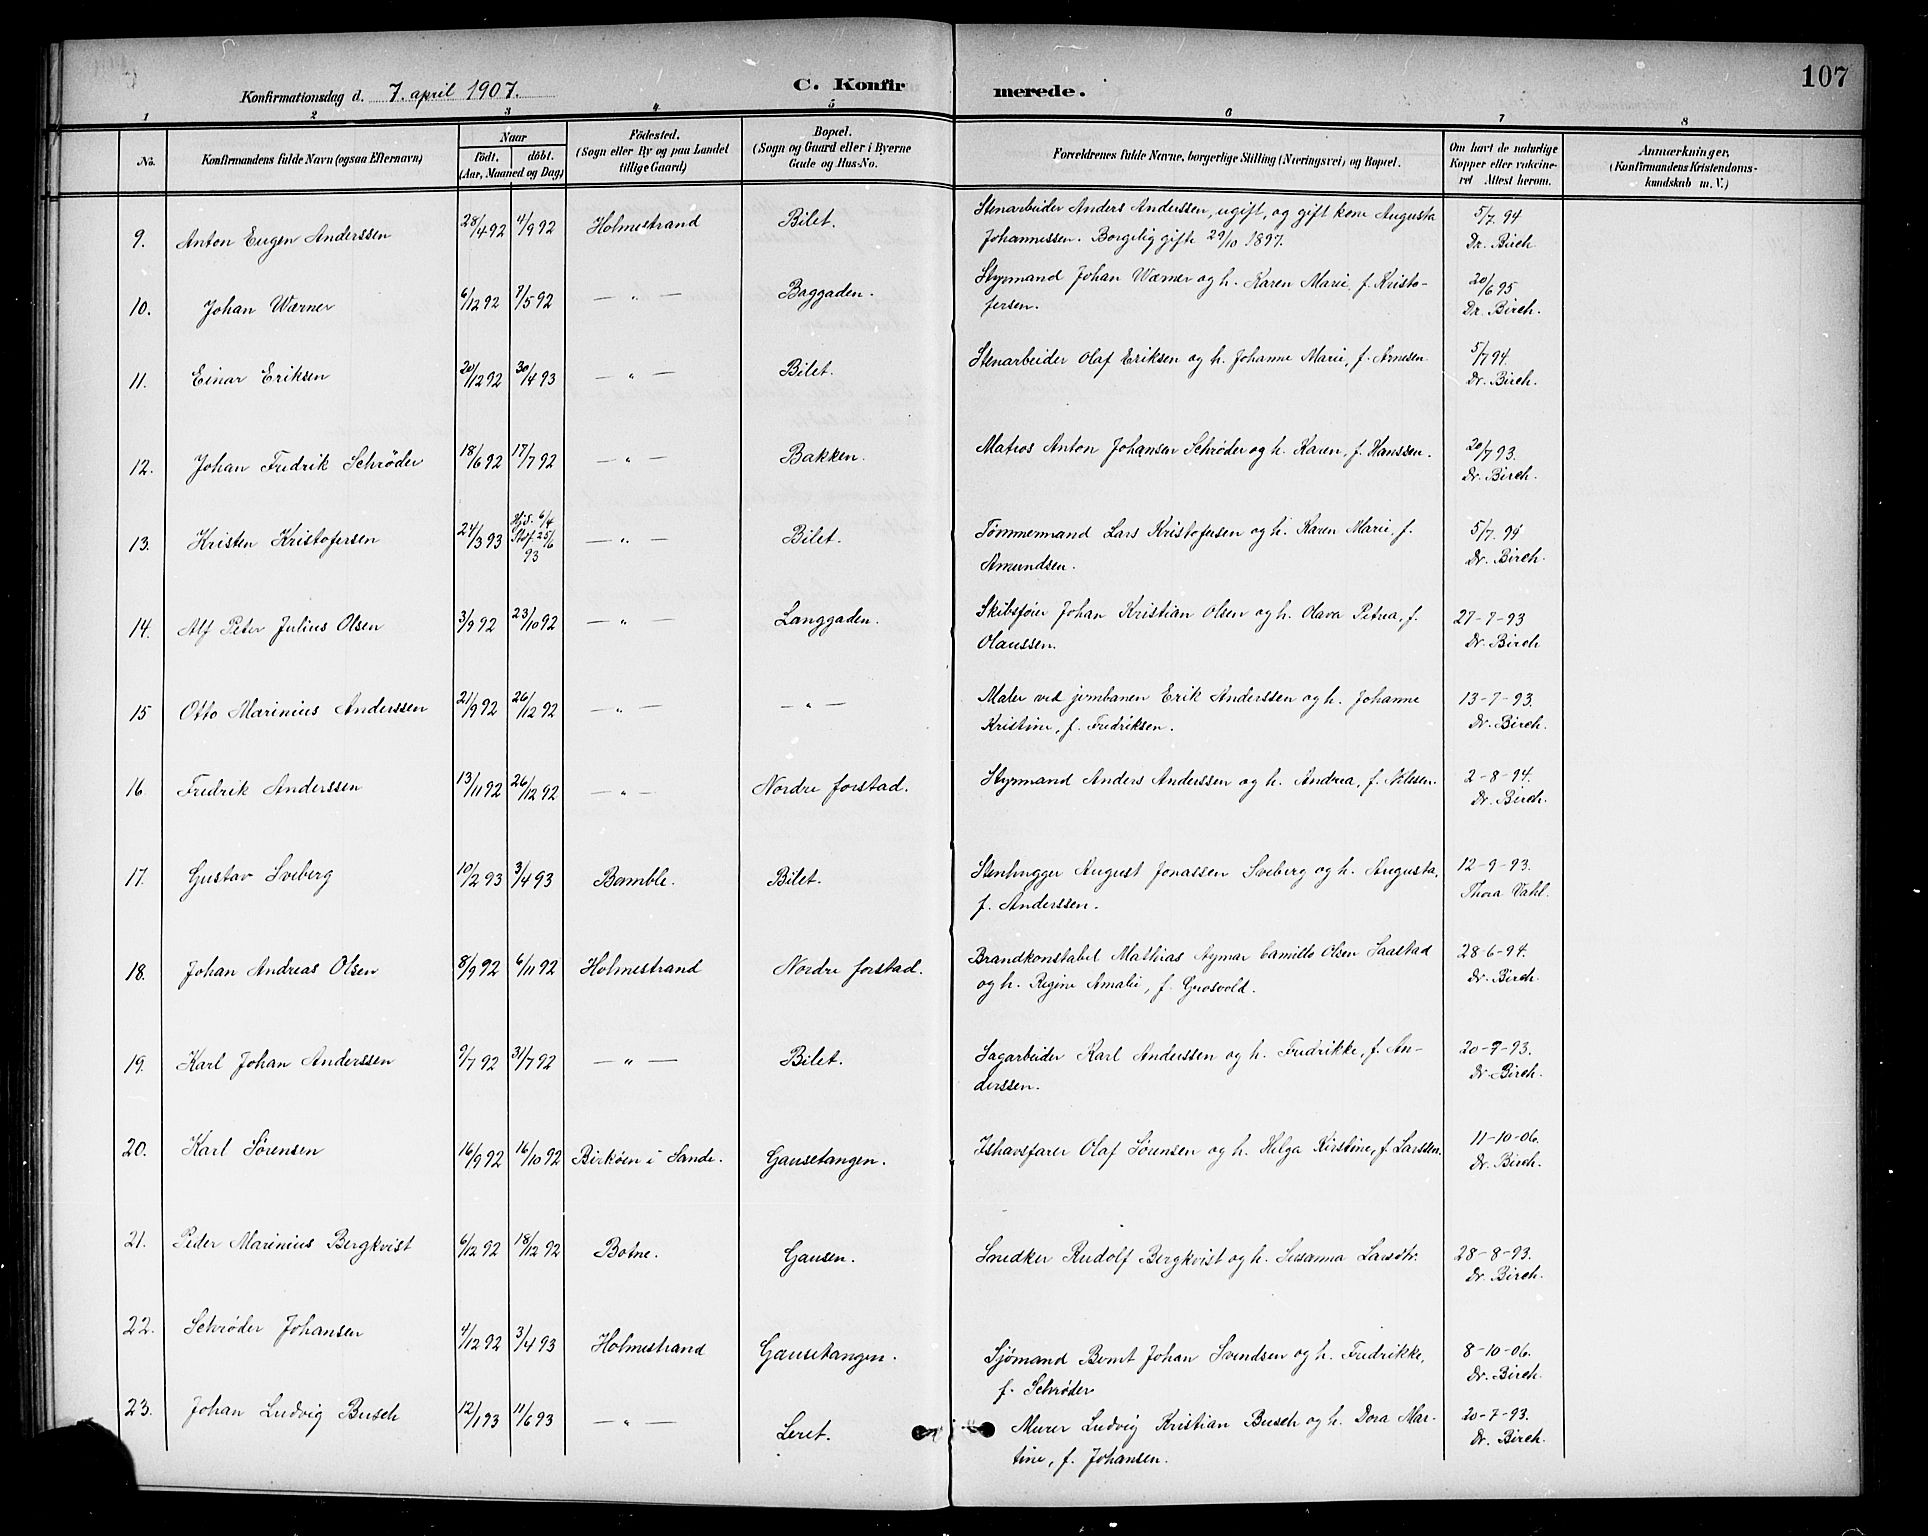 107
Konfirmationsdag d. 7. april 1907.
C. Konfirmerede.
1 2 3 4 5 6 7 8
No.
Konfirmandens fulde Navn (ogsaa Efternavn)
Naar
født. døbt.
(Aar, Maaned og Dag)
Fødested.
(Sogn eller By og paa Landet
tillige Gaard)
Bopæl.
(Sogn og Gaard eller i Byerne
Gade og Hus-No.
Forældrenes fulde Navne, borgerlige Stilling (Næringsvei) og Bopæl.
Om havt de naturlige
Kopper eller vakcine-
ret Attest herom.
Anmærkninger,
(Konfirmandens Kristendoms-
kundskab m. V.)
9. Anton Eugen Anderssen 28/4 92 4/9 92 Holmestrand Bilet. Stenarbeider Anders Anderssen, ugift, og gift kone Augusta 5/7. 94
Johannessen. Borgelig gifte 29/10 1897. Dr. Birch
10. Johan Wærner 6/12 92 7/5 92 — " — Baggaden. Styrmand Johan Wærner og h. Karen Marie, f. Kristo- 20/6 95
fersen. Dr. Birch.
11. Einar Eriksen 20/12 92 30/4 93 — " — Bilet. Stenarbeider Olaf Eriksen og h. Johanne Marie, f. Arnesen 5/7 94.
Dr. Birch.
12. Johan Fredrik Schrøder 18/6 92 17/7 92 — " — Bakken. Matros Anton Johansen Schrøder og h. Karen, f. Hanssen. 20/7 93.
Dr. Birch.
13. Kristen Kristofersen 24/3 93 Hjd. 6/4 Stdf. 25/6 93 — " — Bilet. Tømmermand Lars Kristofersen og h. Karen Marie, f. 5/7. 94
Amundsen. Dr. Birch.
14. Alf Peter Julius Olsen 3/9 92 23/10 92 — " — Langgaden. Skibsfører Johan Kristian Olsen og h. Olava Petrea, f. 27-7-93
Olaussen. Dr. Birch
15 Otto Marinius Anderssen 21/9 92 26/12 92 — " — — " — Maler ved jernbanen Erik Anderssen og h. Johanne 13-7-93.
Kristine, f. Fredriksen. Dr. Birch.
16 Fredrik Anderssen 13/11 92 26/12 92 — " — Nordre forstad. Styrmand Anders Anderssen og h. Andrea, f. Nilssen. 2-8-94.
Dr. Birch.
17. Gustav Sveberg 10/2 93 3/4 93 Bamble. Bilet. Stenhugger August Jonassen Sveberg og h. Augusta, 12-9-93.
f. Anderssen. Thora Vahl.
18. Johan Andreas Olsen 8/9 92 6/11 92 Holmestrand Nordre forstad. Brandkonstabel Mathias Aymar Camillo Olsen Saastad 28-6-94.
og h. Regine Amalie, f. Grosvold. Dr. Birch.
19. Karl Johan Anderssen 9/7 92 31/7 92 — " — Bilet. Sagarbeider Karl Anderssen og h. Fredrikke, f. An- 20-7-93.
derssen. Dr. Birch.
20. Karl Sørensen 16/9 92 16/10 92 Birkøen i Sande. Gausetangen. Ishavsfarer Olaf Sørensen og h. Helga Kirstine, f. Larssen. 11-10-06.
Dr. Birch.
21. Peder Marinius Bergkvist 6/12 92 18/12 92 Botne. Gausen. Snedker Rudolf Bergkvist og h. Susanna Larsdtr. 28-8-93.
Dr. Birch.
22. Schrøder Johansen 4/12 92 3/4 93 Holmestrand Gausetangen. Sjømand Bernt Johan Svendsen og h. Fredrikke, 8-10-06.
f. Schrøder Dr. Birch.
23. Johan Ludvig Busch 12/1 93 11/6 93 — " — Leret. Murer Ludvig Kristian Busch og h. Dora Mar- 20-7-93.
tine, f. Johansen. Dr. Birch.